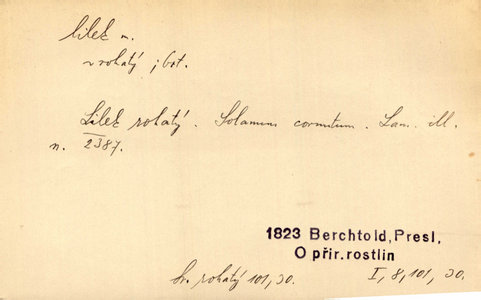 lilek m.
v rohatý, bot.
Lilek rohatý. Solanum cornutum. Lam. ill.
n. 2387.
1823 Berchtold, Presl,
O přír. rostlin
Sv. rohatý 101, 30. I, 8, 101, 30.